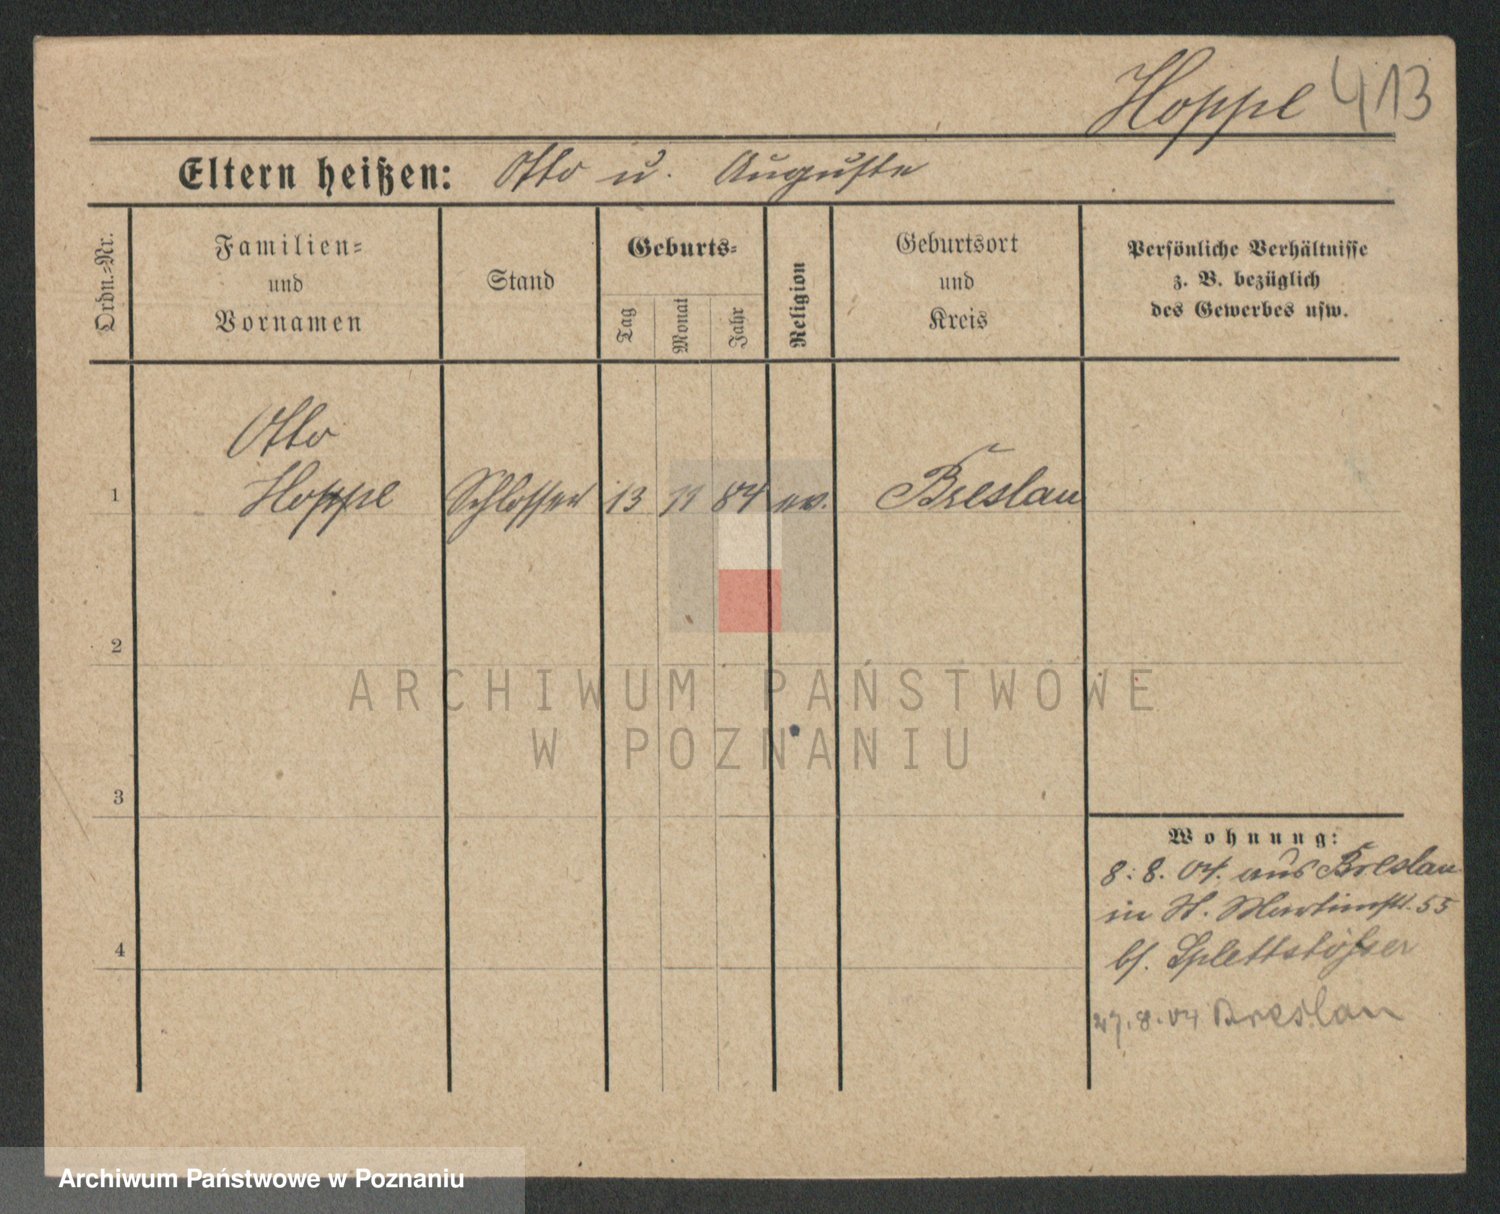 Hoppe 413
Eltern heißen: Otto u. Auguste
Ordn.-Nr.
Familien-
und
Vornamen
Stand
Geburts-
Tag
Monat
Jahr
Religion
Geburtsort
und
Kreis
Persönliche Verhältnisse
z. B. bezüglich
des Gewerbes usw.
Otto
1 Hoppe Schlosser 13 11 84 ev. Breslau
2
3
4
Wohnung:
8. 8. 04. aus Breslau
in St. Martinstr. 55
bf. Splettstößer
27.8.04 Breslau
ARCHIWUM PAŃSTWOWE
W POZNANIU
Archiwum Państwowe w Poznaniu